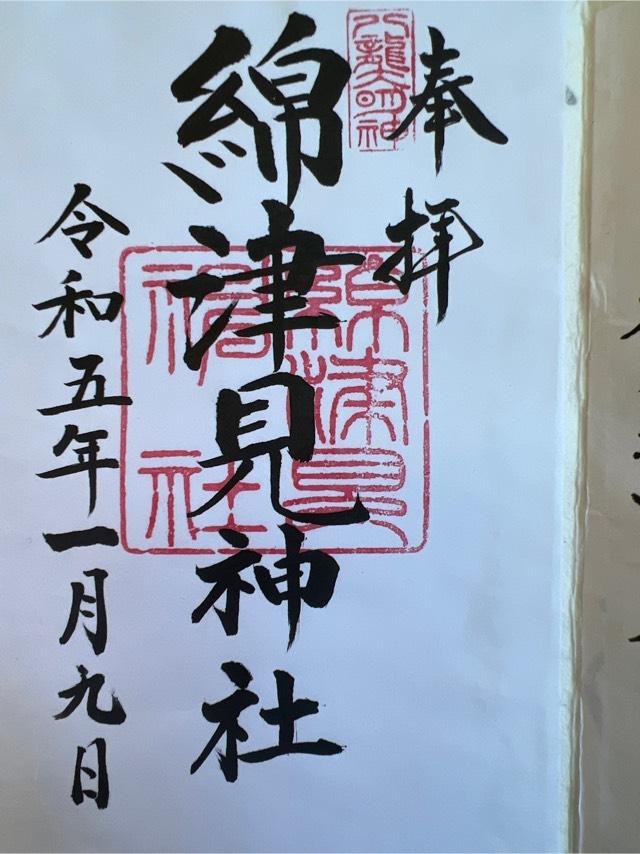 奉拝
八龍大明神
綿津見神社
綿津見神社
令和五年一月九日